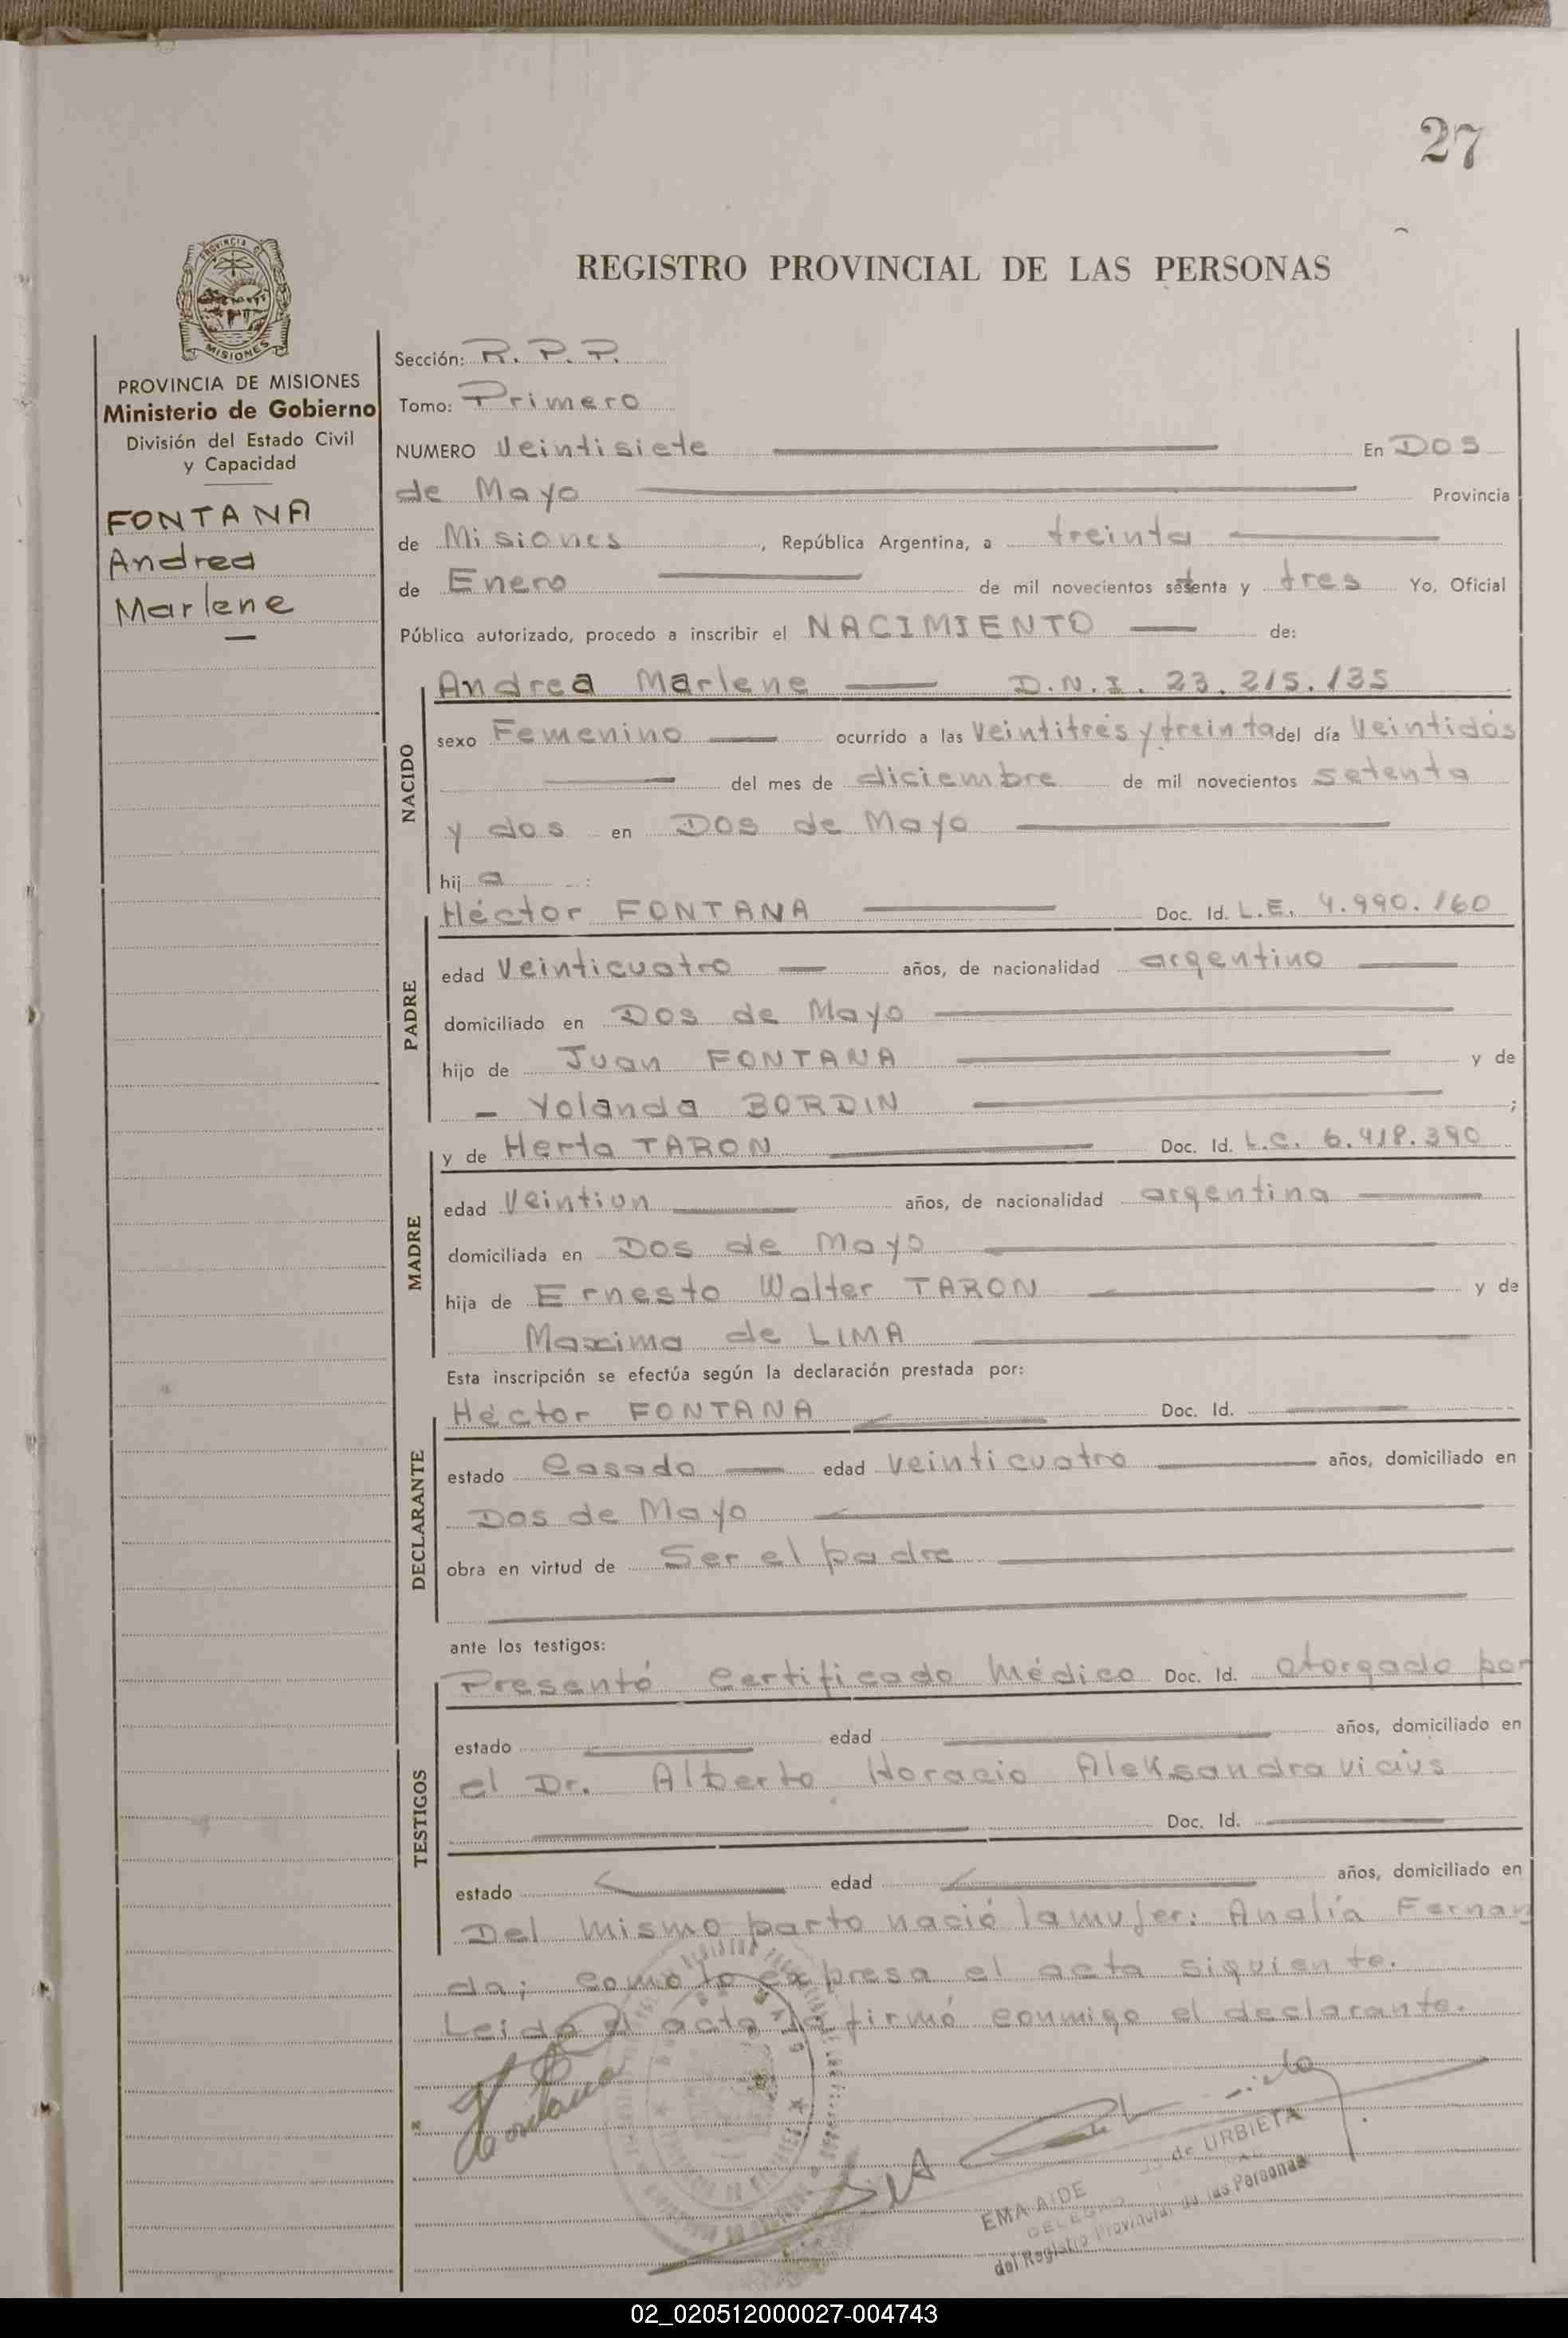 27
PROVINCIA DE
MISIONES
REGISTRO PROVINCIAL DE LAS PERSONAS
PROVINCIA DE MISIONES
Ministerio de Gobierno
División del Estado Civil
y Capacidad
FONTANA
Andrea
Marlene
Sección: R. P. P.
Tomo: Primero
NUMERO Veintisiete En Dos
de Mayo Provincia
de Misiones, República Argentina, a treinta
de Enero de mil novecientos setenta y tres Yo, Oficial
Público autorizado, procedo a inscribir el NACIMIENTO de:
NACIDO
Andrea Marlene D.N.I. 23.215.135
sexo Femenino ocurrido a las Veintitrés y treinta del día Veintidós
del mes de diciembre de mil novecientos setenta
y dos en Dos de Mayo
hij a
PADRE
Héctor FONTANA Doc. Id. L.E. 4.990.160
edad Veinticuatro años, de nacionalidad argentino
domiciliado en Dos de Mayo
hijo de Juan FONTANA y de
- Yolanda BORDIN ;
MADRE
y de Herta TARON Doc. Id. L.C. 6.418.390
edad Veintiun años, de nacionalidad argentina
domiciliada en Dos de Mayo
hija de Ernesto Walter TARON y de
Maxima de LIMA
Esta inscripción se efectúa según la declaración prestada por:
DECLARANTE
Héctor FONTANA Doc. Id.
estado Casado edad veinticuatro años, domiciliado en
Dos de Mayo
obra en virtud de Ser el padre
ante los testigos:
TESTIGOS
Presentó Certificado Médico Doc. Id. otorgado por
estado edad años, domiciliado en
el Dr. Alberto Horacio Aleksandravicius
Doc. Id.
estado edad años, domiciliado en
Del mismo parto nació la mujer: Analía Fernan
da; como lo expresa el acta siguiente.
Leída el acta la firmó conmigo el declarante.
HFontana
EMA AIDE de URBIETA
DELEGAD
del Registro Provincial de las Personas
02_020512000027-004743